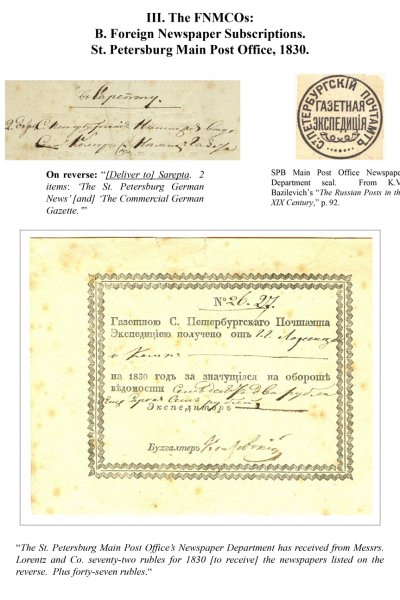 III. The FNMCOs:
B. Foreign Newspaper Subscriptions.
St. Petersburg Main Post Office, 1830.
въ Сарепту.
On reverse: “[Deliver to] Sarepta. 2
items: ‘The St. Petersburg German
News’ [and] ‘The Commercial German
Gazette.’”
С.ПЕТЕРБУРГСКІЙ ПОЧТАМТЪ
ГАЗЕТНАЯ
ЭКСПЕДИЦІЯ
SPB Main Post Office Newspape
Department seal. From K.V
Bazilevich’s “The Russian Posts in the
XIX Century,” p. 92.
No 26. 27.
Газетною С. Петербургскаго Почтамта
Экспедиціею получено отъ
на 1830 годъ за значущіяся на оборотѣ
вѣдомости семьдесятъ два рубля
Экспедиторъ
Бухгалтеръ
“The St. Petersburg Main Post Office’s Newspaper Department has received from Messrs.
Lorentz and Co. seventy-two rubles for 1830 [to receive] the newspapers listed on the
reverse. Plus forty-seven rubles.“